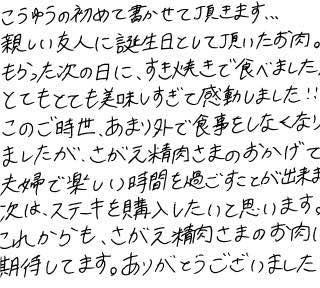 こうゆうの初めて書かせて頂きます...
親しい友人に誕生日として頂いたお肉。
もらった次の日に、すき焼きで食べました
とてもとても美味しすぎて感動しました!!
このご時世、あまり外で食事をしなくなり
ましたが、さがえ精肉さまのおかげで
夫婦で楽しい時間を過ごすことが出来ま
次は、ステーキを購入したいと思います。
これからも、さがえ精肉さまのお肉に
期待してます。ありがとうございました